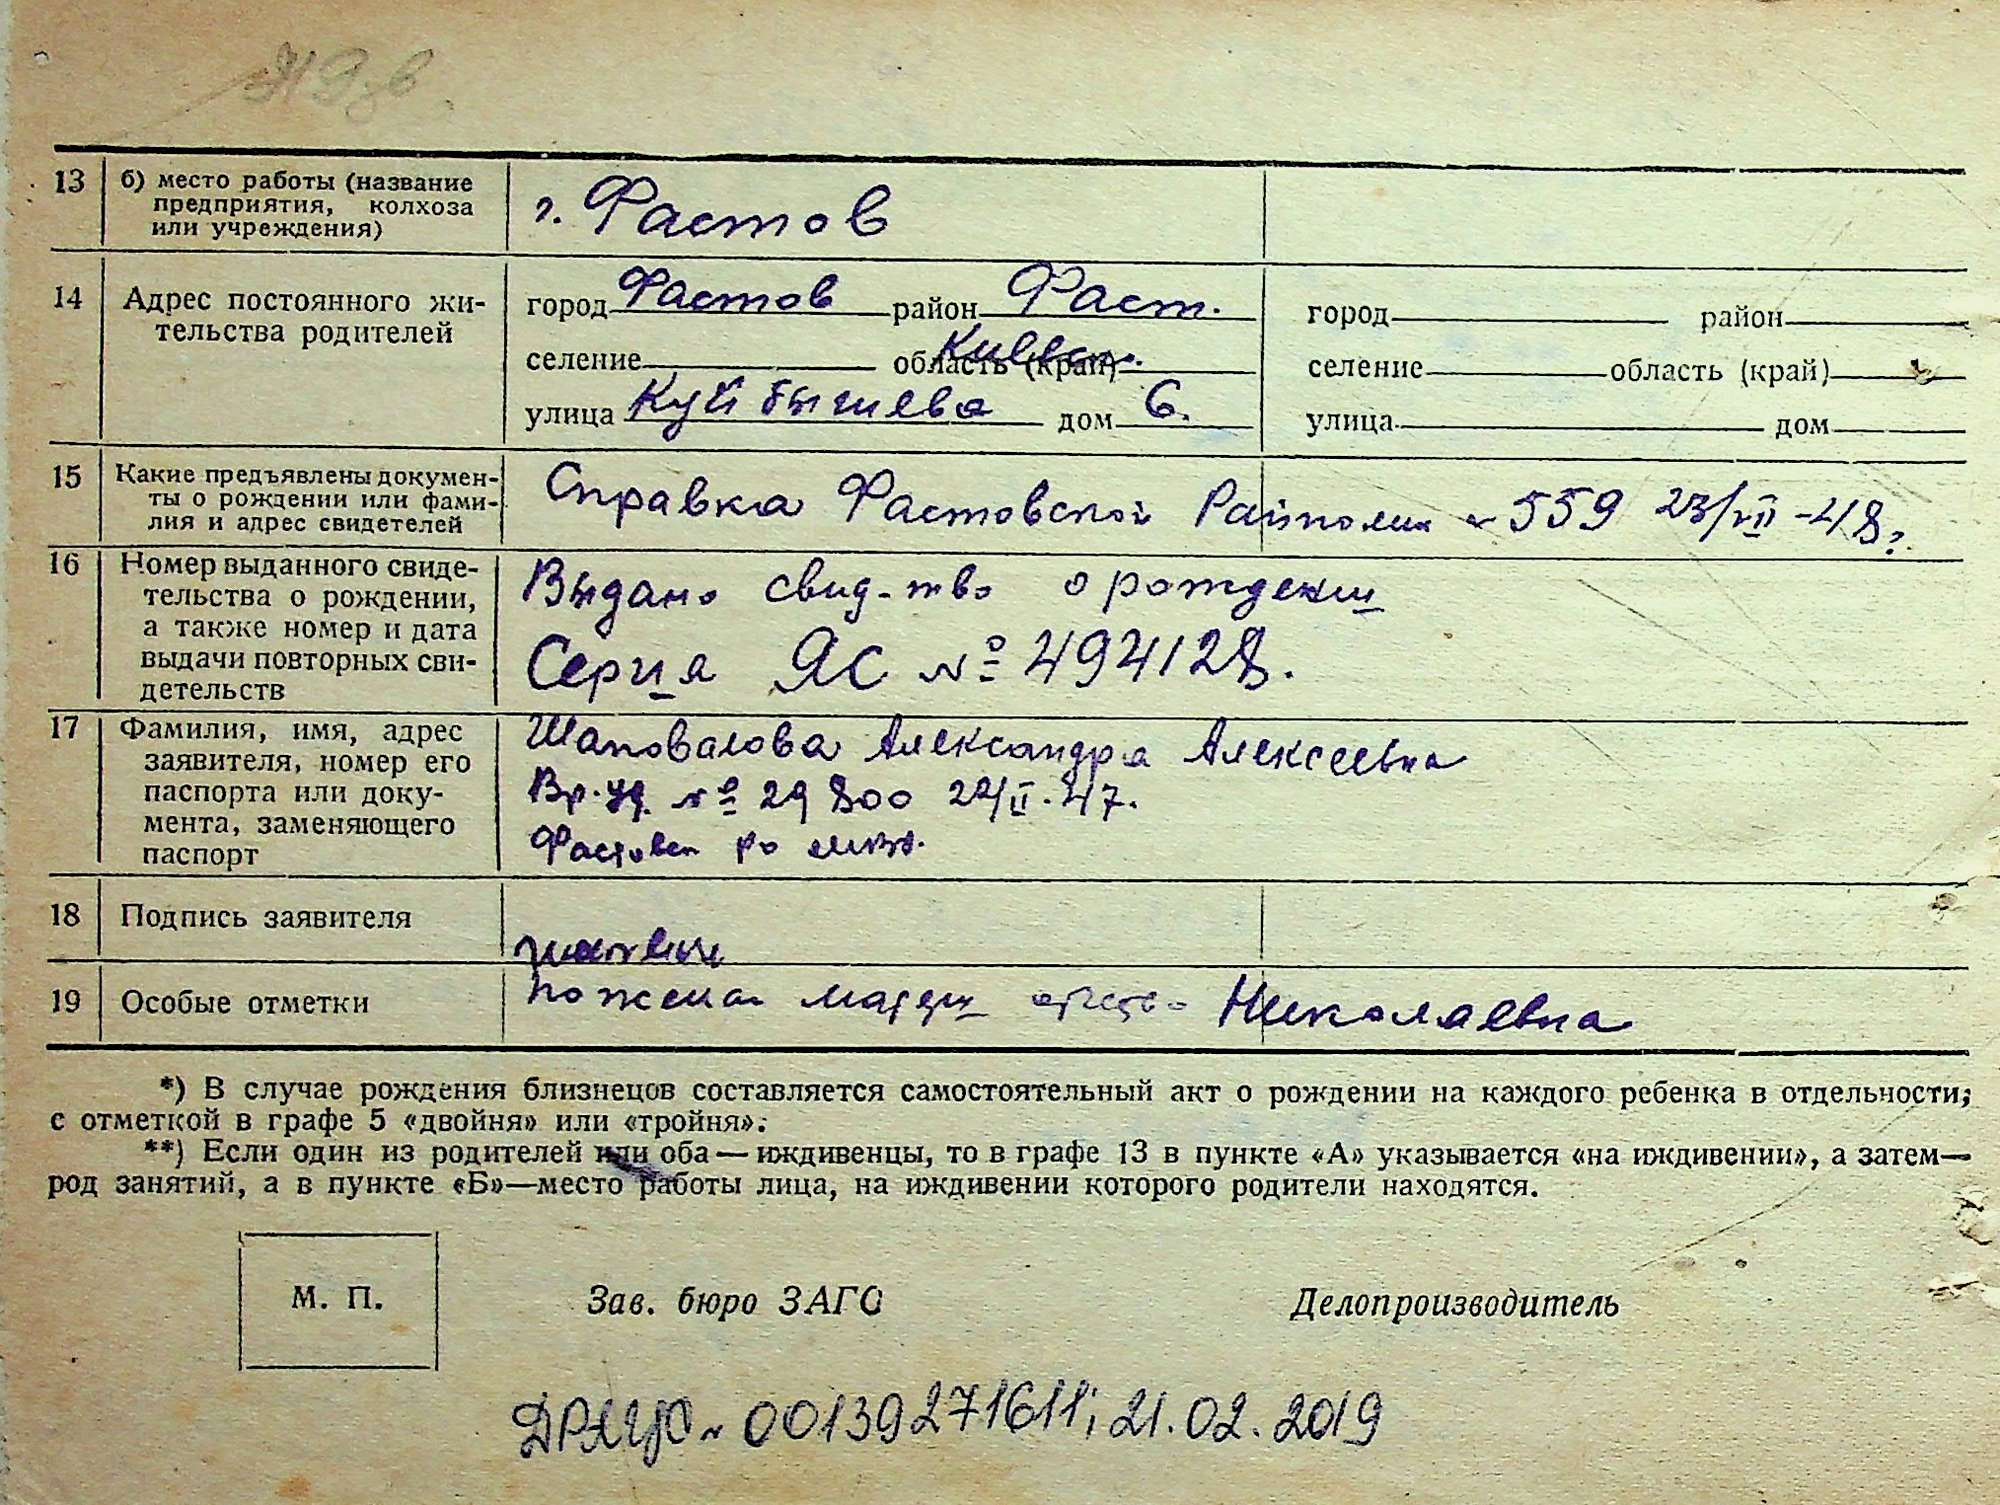 13 б) место работы (название
предприятия, колхоза
или учреждения)
г. Фастов
14 Адрес постоянного жи-
тельства родителей
город Фастов район Фаст.
селение область (край) Киевск.
улица Куйбышева дом 6.
город район
селение область (край)
улица дом
15 Какие предъявлены докумен-
ты о рождении или фами-
лия и адрес свидетелей
Справка Фастовской 559 23/VII-48г.
16 Номер выданного свиде-
тельства о рождении,
а также номер и дата
выдачи повторных сви-
детельств
Выдано свид-тво о рождении
Серия ЯС № 494128.
17 Фамилия, имя, адрес
заявителя, номер его
паспорта или доку-
мента, заменяющего
паспорт
Шаповалова Александра Алексеевна
Вр. уд. № 29800 22/II-47.
Фастовск РО
18 Подпись заявителя
19 Особые отметки
матери Николаевна
*) В случае рождения близнецов составляется самостоятельный акт о рождении на каждого ребенка в отдельности;
с отметкой в графе 5 «двойня» или «тройня».
**) Если один из родителей или оба — иждивенцы, то в графе 13 в пункте «А» указывается «на иждивении», а затем—
род занятий, а в пункте «Б»—место работы лица, на иждивении которого родители находятся.
М. П.
Зав. бюро ЗАГС
Делопроизводитель
ДРАЦС 00139271611; 21.02.2019